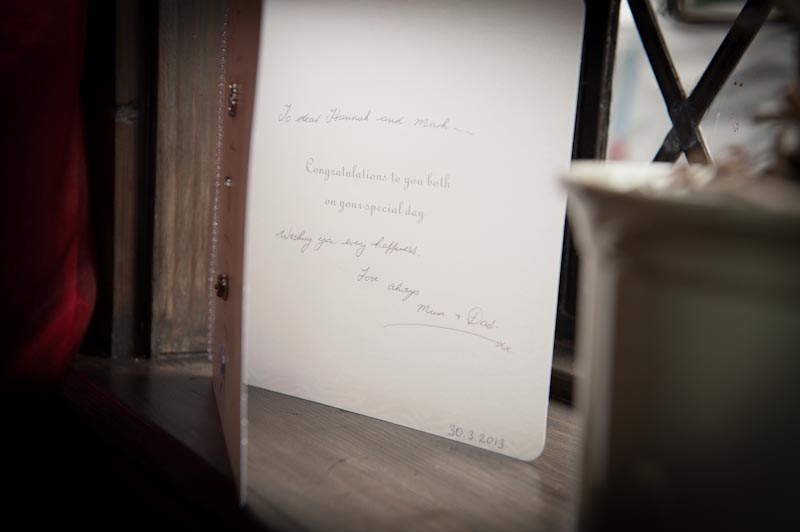 To dear Hannah and Mark ~~
Congratulations to you both
on your special day
Wishing you every happiness.
Love always
Mum + Dad.
xx
30.3.2013